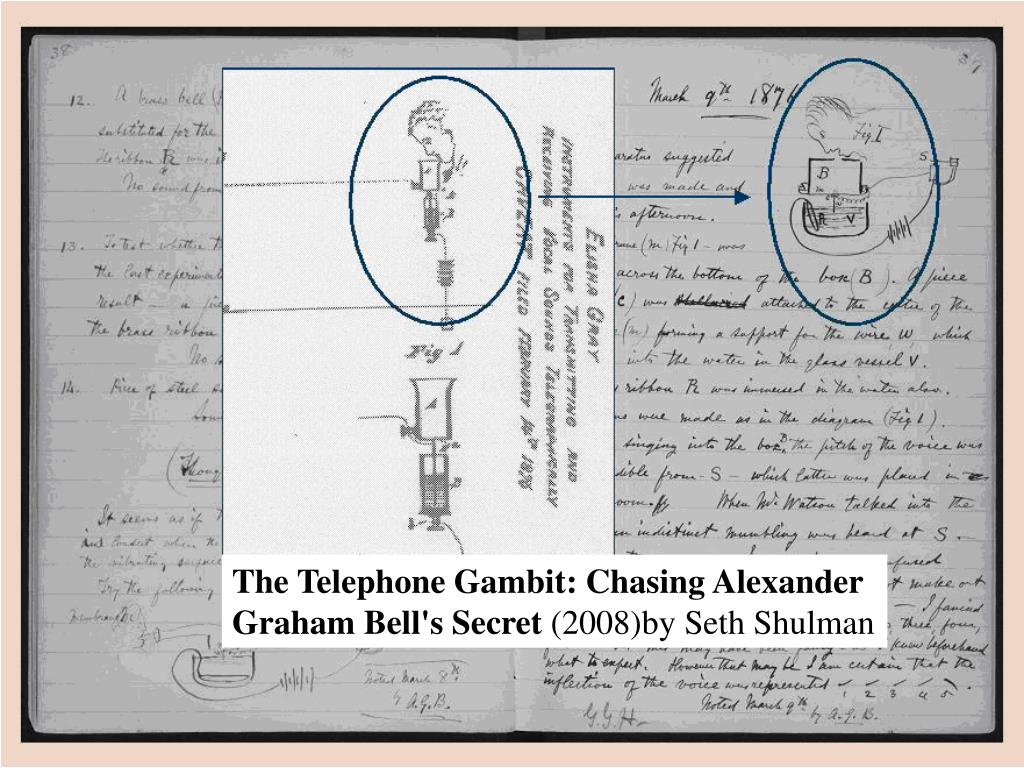 38
12. A brass bell
substituted for the
the ribbon R was
No sound from
13. To test whether
the last experiment
result — a
the brass ribbon
No
14. Piece of steel
It seems as if
the vibrating surface
Try the following
membrane
Noted March 8th.
by A.G.B.
INSTRUMENTS FOR TRANSMITTING AND
RECEIVING VOCAL SOUNDS TELEGRAPHICALLY
CAVEAT FILED FEBRUARY 14th 1876
ELISHA GRAY
Fig 1
39
March 9th 1876
Fig. 1
S
B
m
R V
apparatus suggested
was made and
afternoon.
(m) Fig 1 — was
across the bottom of the box (B). A piece
(C) was attached to the centre of the
(m) forming a support for the wire W, which
into the water in the glass vessel V.
ribbon R was immersed in the water also.
were made as in the diagram (Fig 1).
singing into the box, the pitch of the voice was
from S — which latter was placed in
When Mr. Watson talked into the
an indistinct mumbling was heard at S. —
confused
make out
— I fancied
three four,
may have been know beforehand
what to expect. However that may be I am certain that the
inflection of the voice was represented
1 2 3 4 5
Noted March 9th
by A.G.B.
G.G.H.
The Telephone Gambit: Chasing Alexander
Graham Bell's Secret (2008)by Seth Shulman